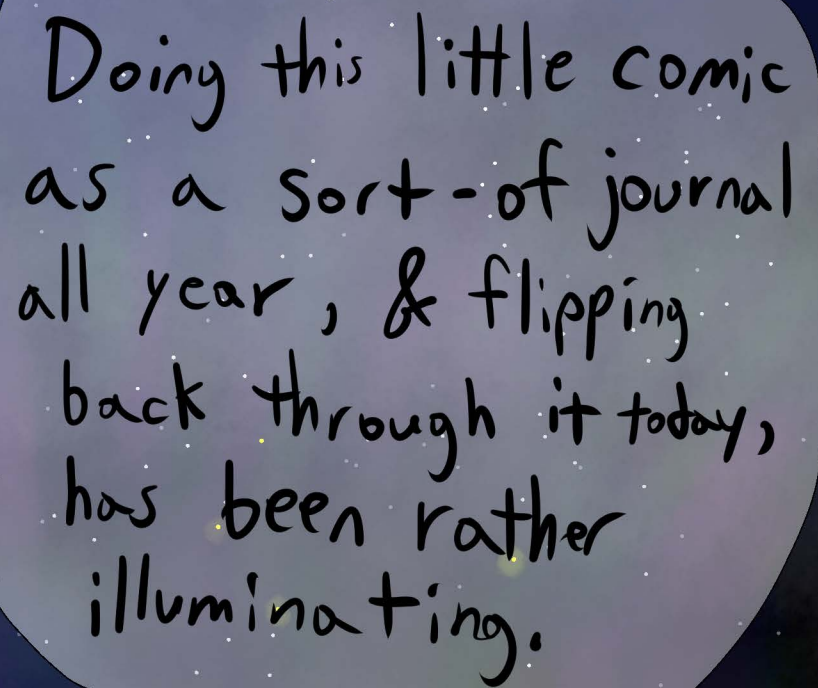 Doing this little comic
as a sort-of journal
all year, & flipping
back through it today,
has been rather
illuminating.